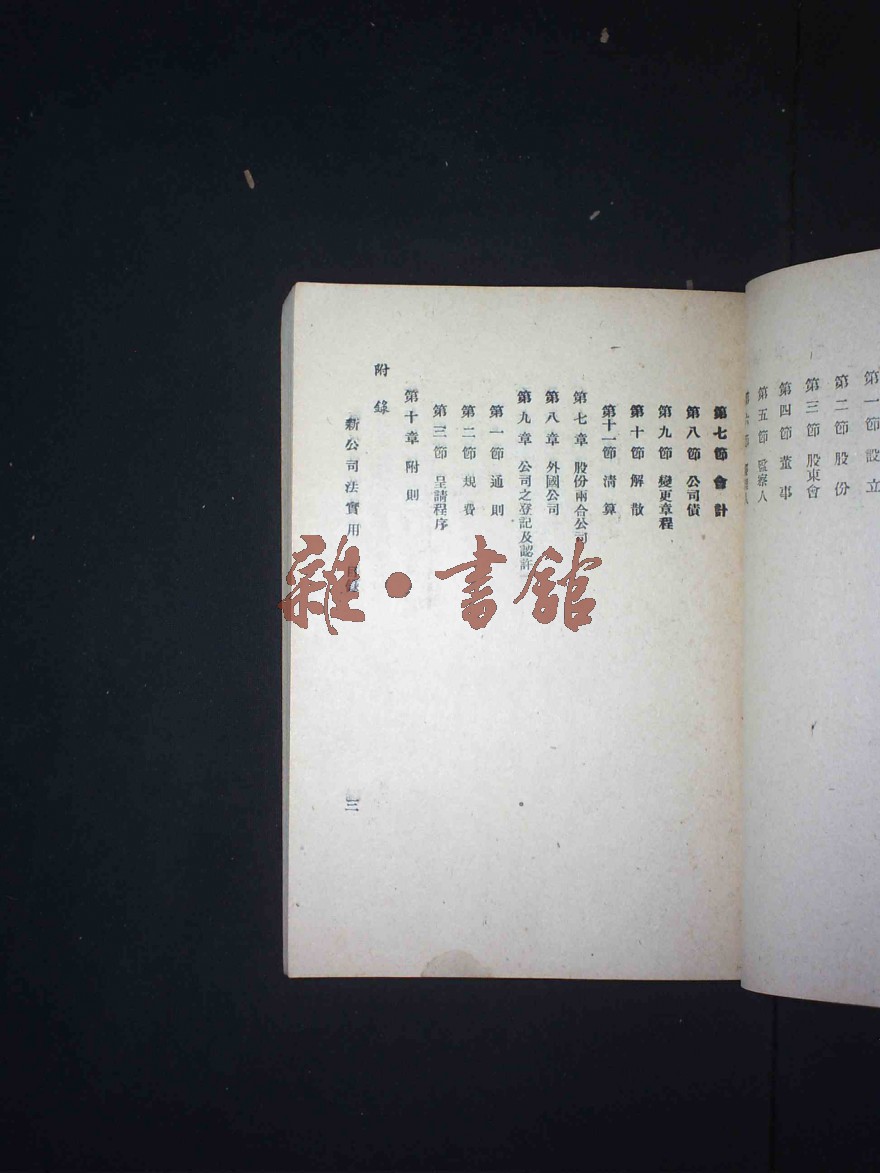 第一節 設立
第二節 股份
第三節 股東會
第四節 董事
第五節 監察人
第七節 會計
第八節 公司債
第九節 變更章程
第十節 解散
第十一節 清算
第七章 股份兩合公司
第八章 外國公司
第九章 公司之登記及認許
第一節 通則
第二節 規費
第三節 呈請程序
第十章 附則
附錄
新公司法實用 目錄
三
雜·書館